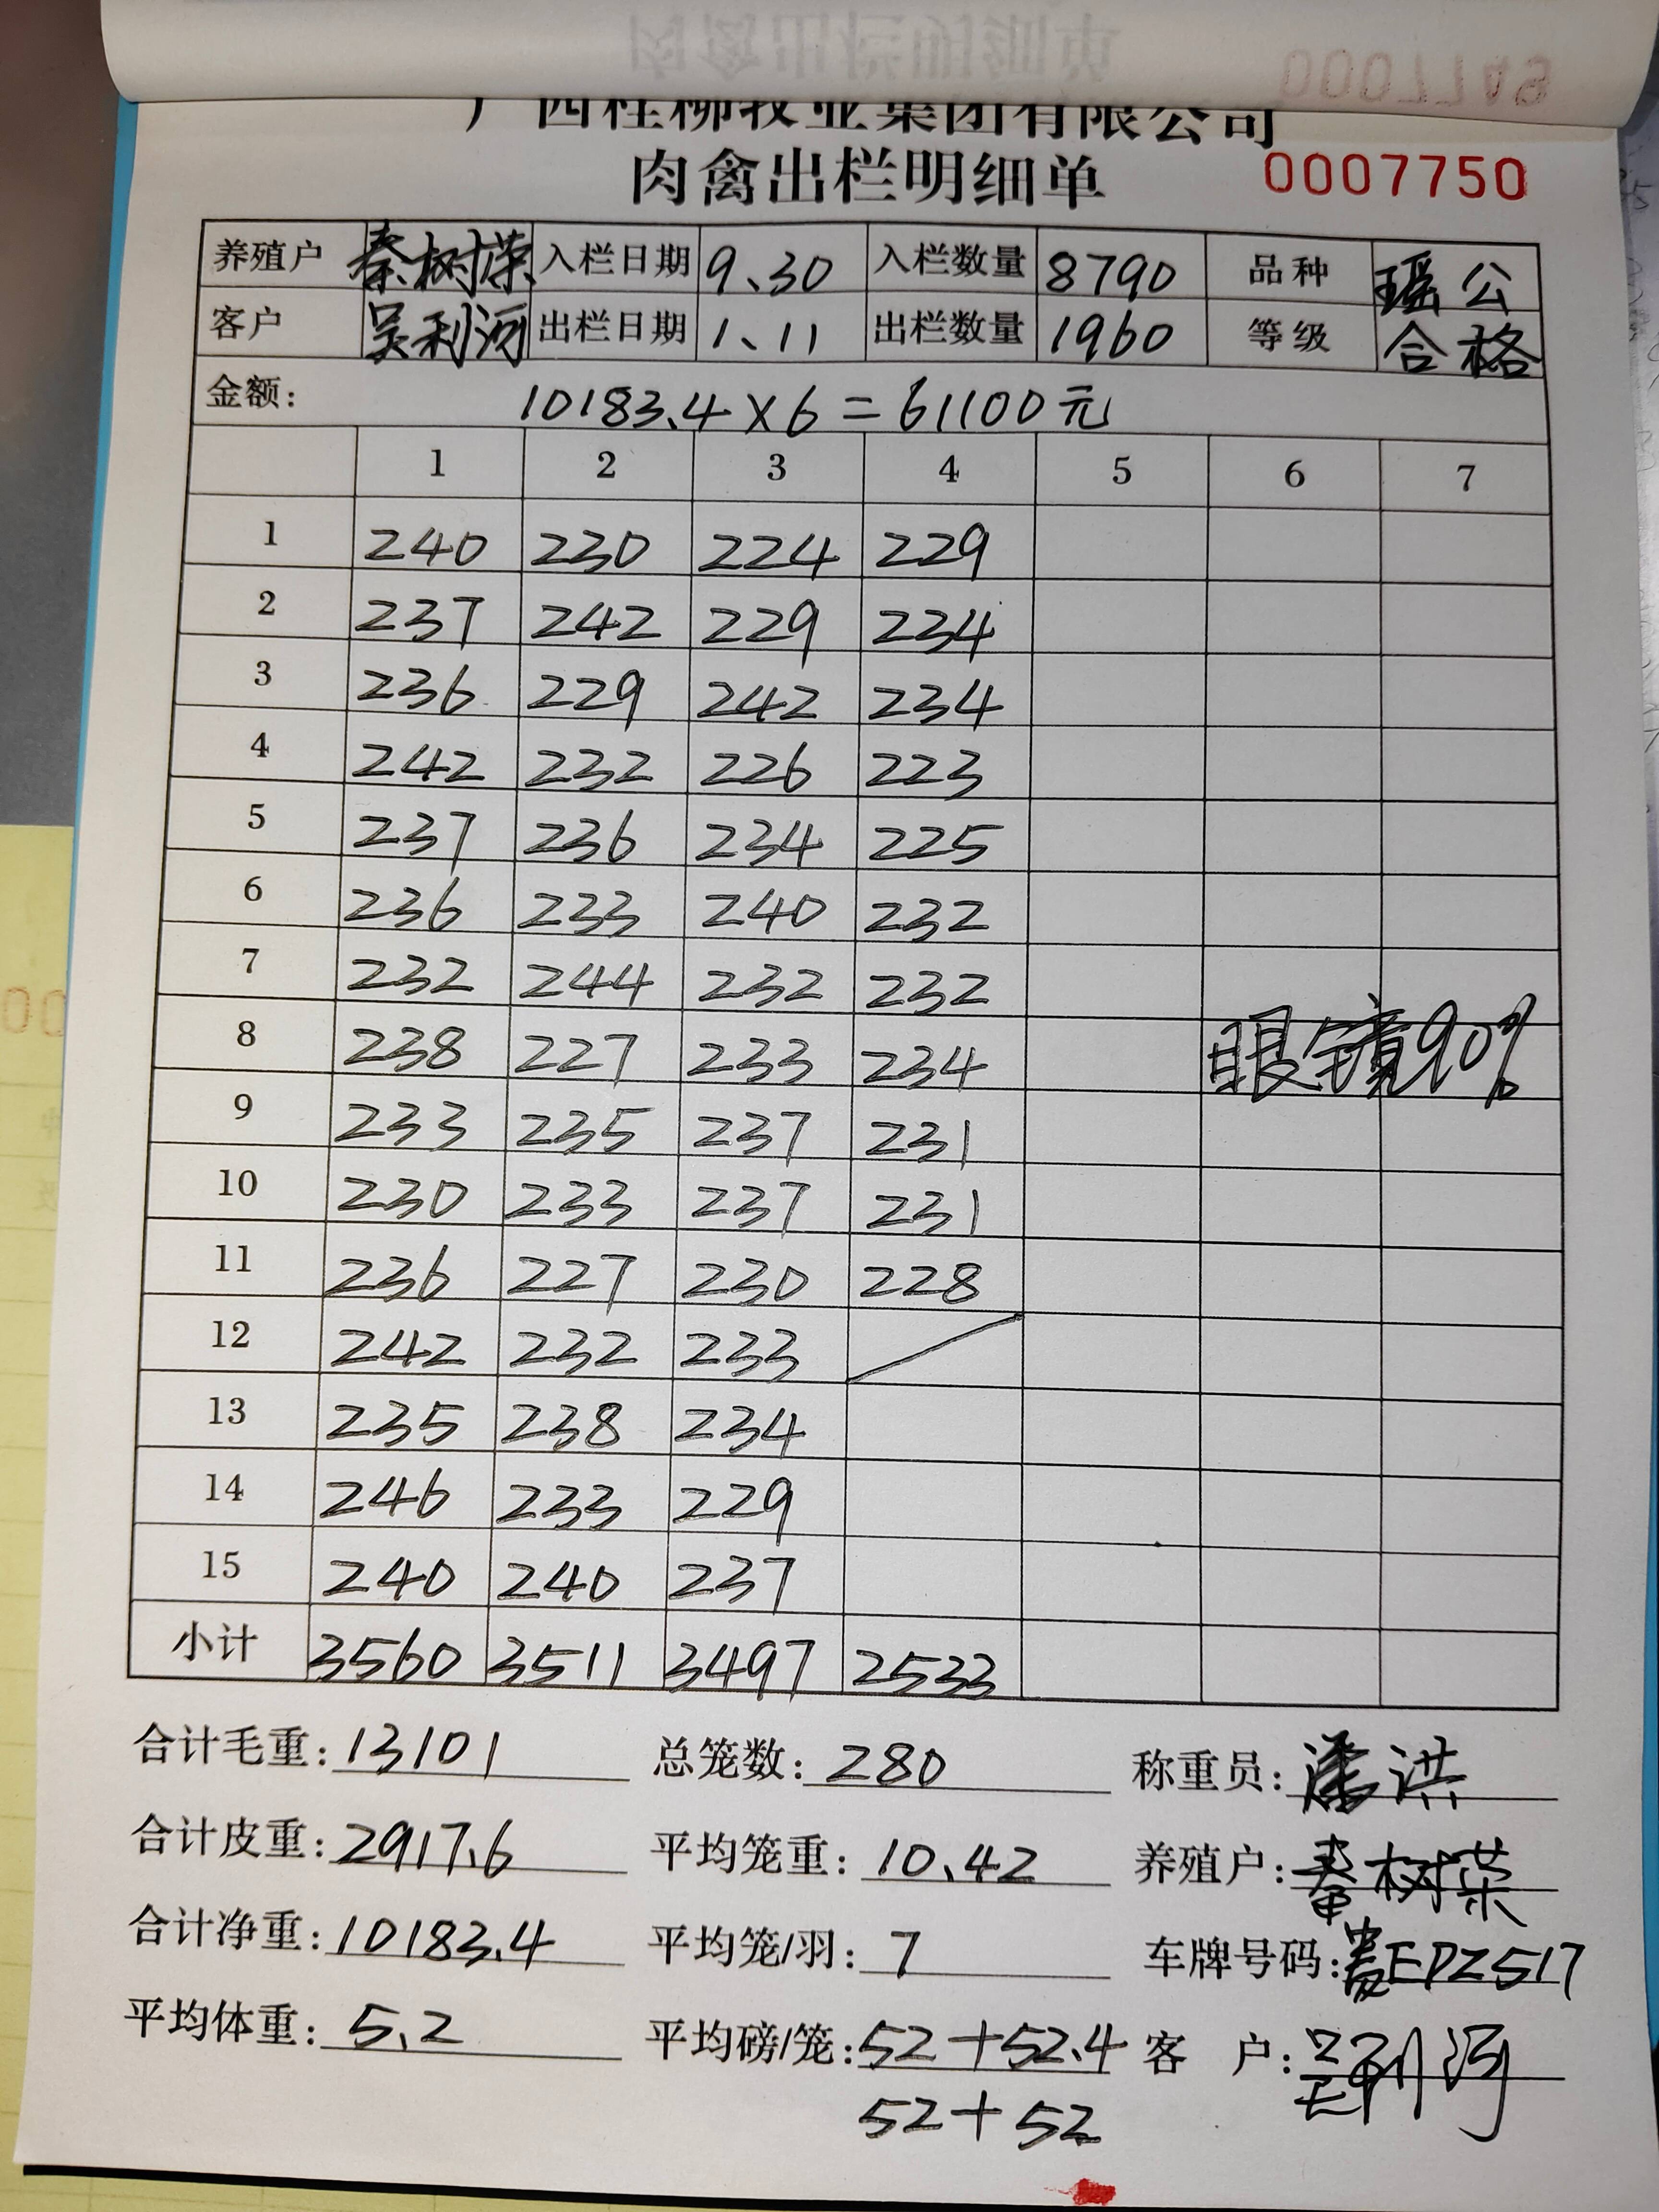 广西桂柳牧业集团有限公司
肉禽出栏明细单 0007750
养殖户 秦树荣 入栏日期 9、30 入栏数量 8790 品种 瑶公
客户 吴利河 出栏日期 1、11 出栏数量 1960 等级 合格
金额: 10183.4×6=61100元
1 2 3 4 5 6 7
1 240 230 224 229
2 237 242 229 234
3 236 229 242 234
4 242 232 226 223
5 237 236 234 225
6 236 233 240 232
7 232 244 232 232
8 238 227 233 234 眼镜90%
9 233 235 237 231
10 230 233 237 231
11 236 227 230 228
12 242 232 233
13 235 238 234
14 246 233 229
15 240 240 237
小计 3560 3511 3497 2533
合计毛重: 13101 总笼数: 280 称重员: 潘洪
合计皮重: 2917.6 平均笼重: 10.42 养殖户: 秦树荣
合计净重: 10183.4 平均笼/羽: 7 车牌号码: EDZ517
平均体重: 5.2 平均磅/笼: 52+52.4 客 户: 吴利河
52+52